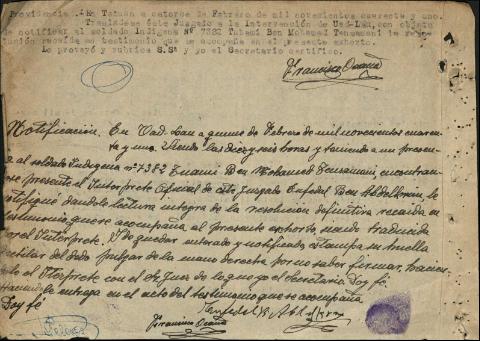 Providencia.- En Tetuan a catorce de Febrero de mil novecientos cuarenta y uno.
Trasladese éste Juzgado a la Intervención de Uad-Lau, con objeto
de notificar al soldado Indígena Nº 7382 Tuhami Ben Mohamed Temsamani la reso-
lución recaida en testimonio que se acompaña en el presente exhorto.
Lo proveyó y rubrica S.Sª y yo el Secretario certifico.
Francisco Ocaña
Notificación. En Uad-Lau a quince de Febrero de mil novecientos cuaren-
ta y uno. Siendo las diez y seis horas y teniendo a mi presen-
cia al soldado Indigena nº 7382 Tuami Ben Mohamed Temsamani, encontran-
dose presente el Interprete Oficial de este Juzgado Ben Abdelkrim, le
notifiqué dandole lectura integra de la resolución definitiva recaida en
testimonio, que se acompaña al presente exhorto, siendo traducida
por el Intérprete. Y de quedar enterado y notificado estampa su huella
dactilar del dedo pulgar de la mano derecha por no saber firmar,
el Interprete con el de lo que yo el Secretario Doy fé.
le entrega en el acto del testimonio que se acompaña
Doy fé
Francisco Ocaña